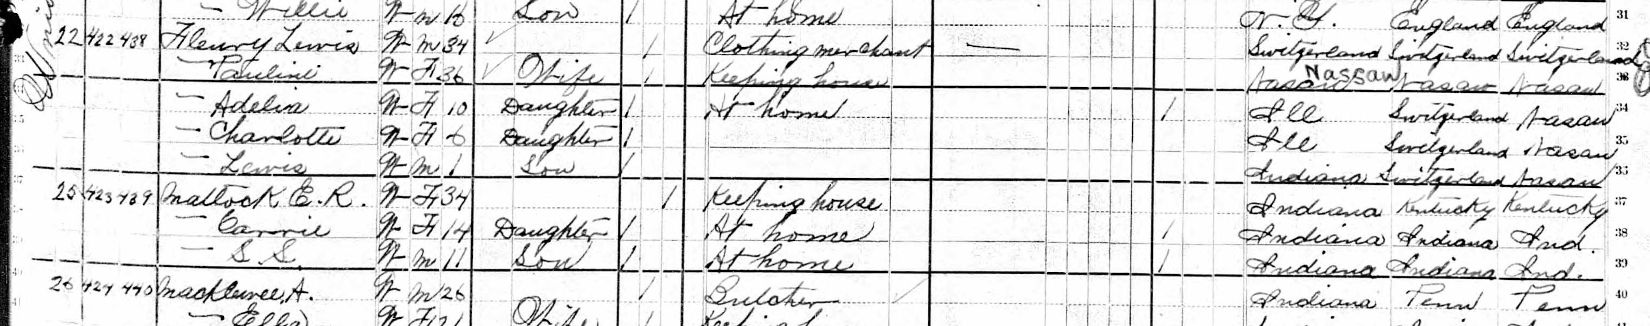 — Willie W M 16 Son 1 At home N. Y. England England 31
22 422 438 Fleury Lewis W M 34 1 Clothing merchant — Switzerland Switzerland Switzerland 32
— Pauline W F 36 Wife 1 Keeping house Nasaw Nassaw Nasaw Nasaw
— Adelia W F 10 Daughter 1 At home 1 Ill Switzerland Nasaw 34
— Charlotte W F 6 Daughter 1 Ill Switzerland Nasaw 35
— Lewis W M 1 Son 1 Indiana Switzerland Nasaw
25 423 439 Mattock E. R. W F 34 1 Keeping house Indiana Kentucky Kentucky 37
— Carrie W F 14 Daughter 1 At home 1 Indiana Indiana Ind 38
— S. S. W M 11 Son 1 At home 1 Indiana Indiana Ind. 39
26 424 440 A. W M 26 1 Butcher Indiana Tenn Tenn 40
— Ella W F 21 Wife 1 Keeping